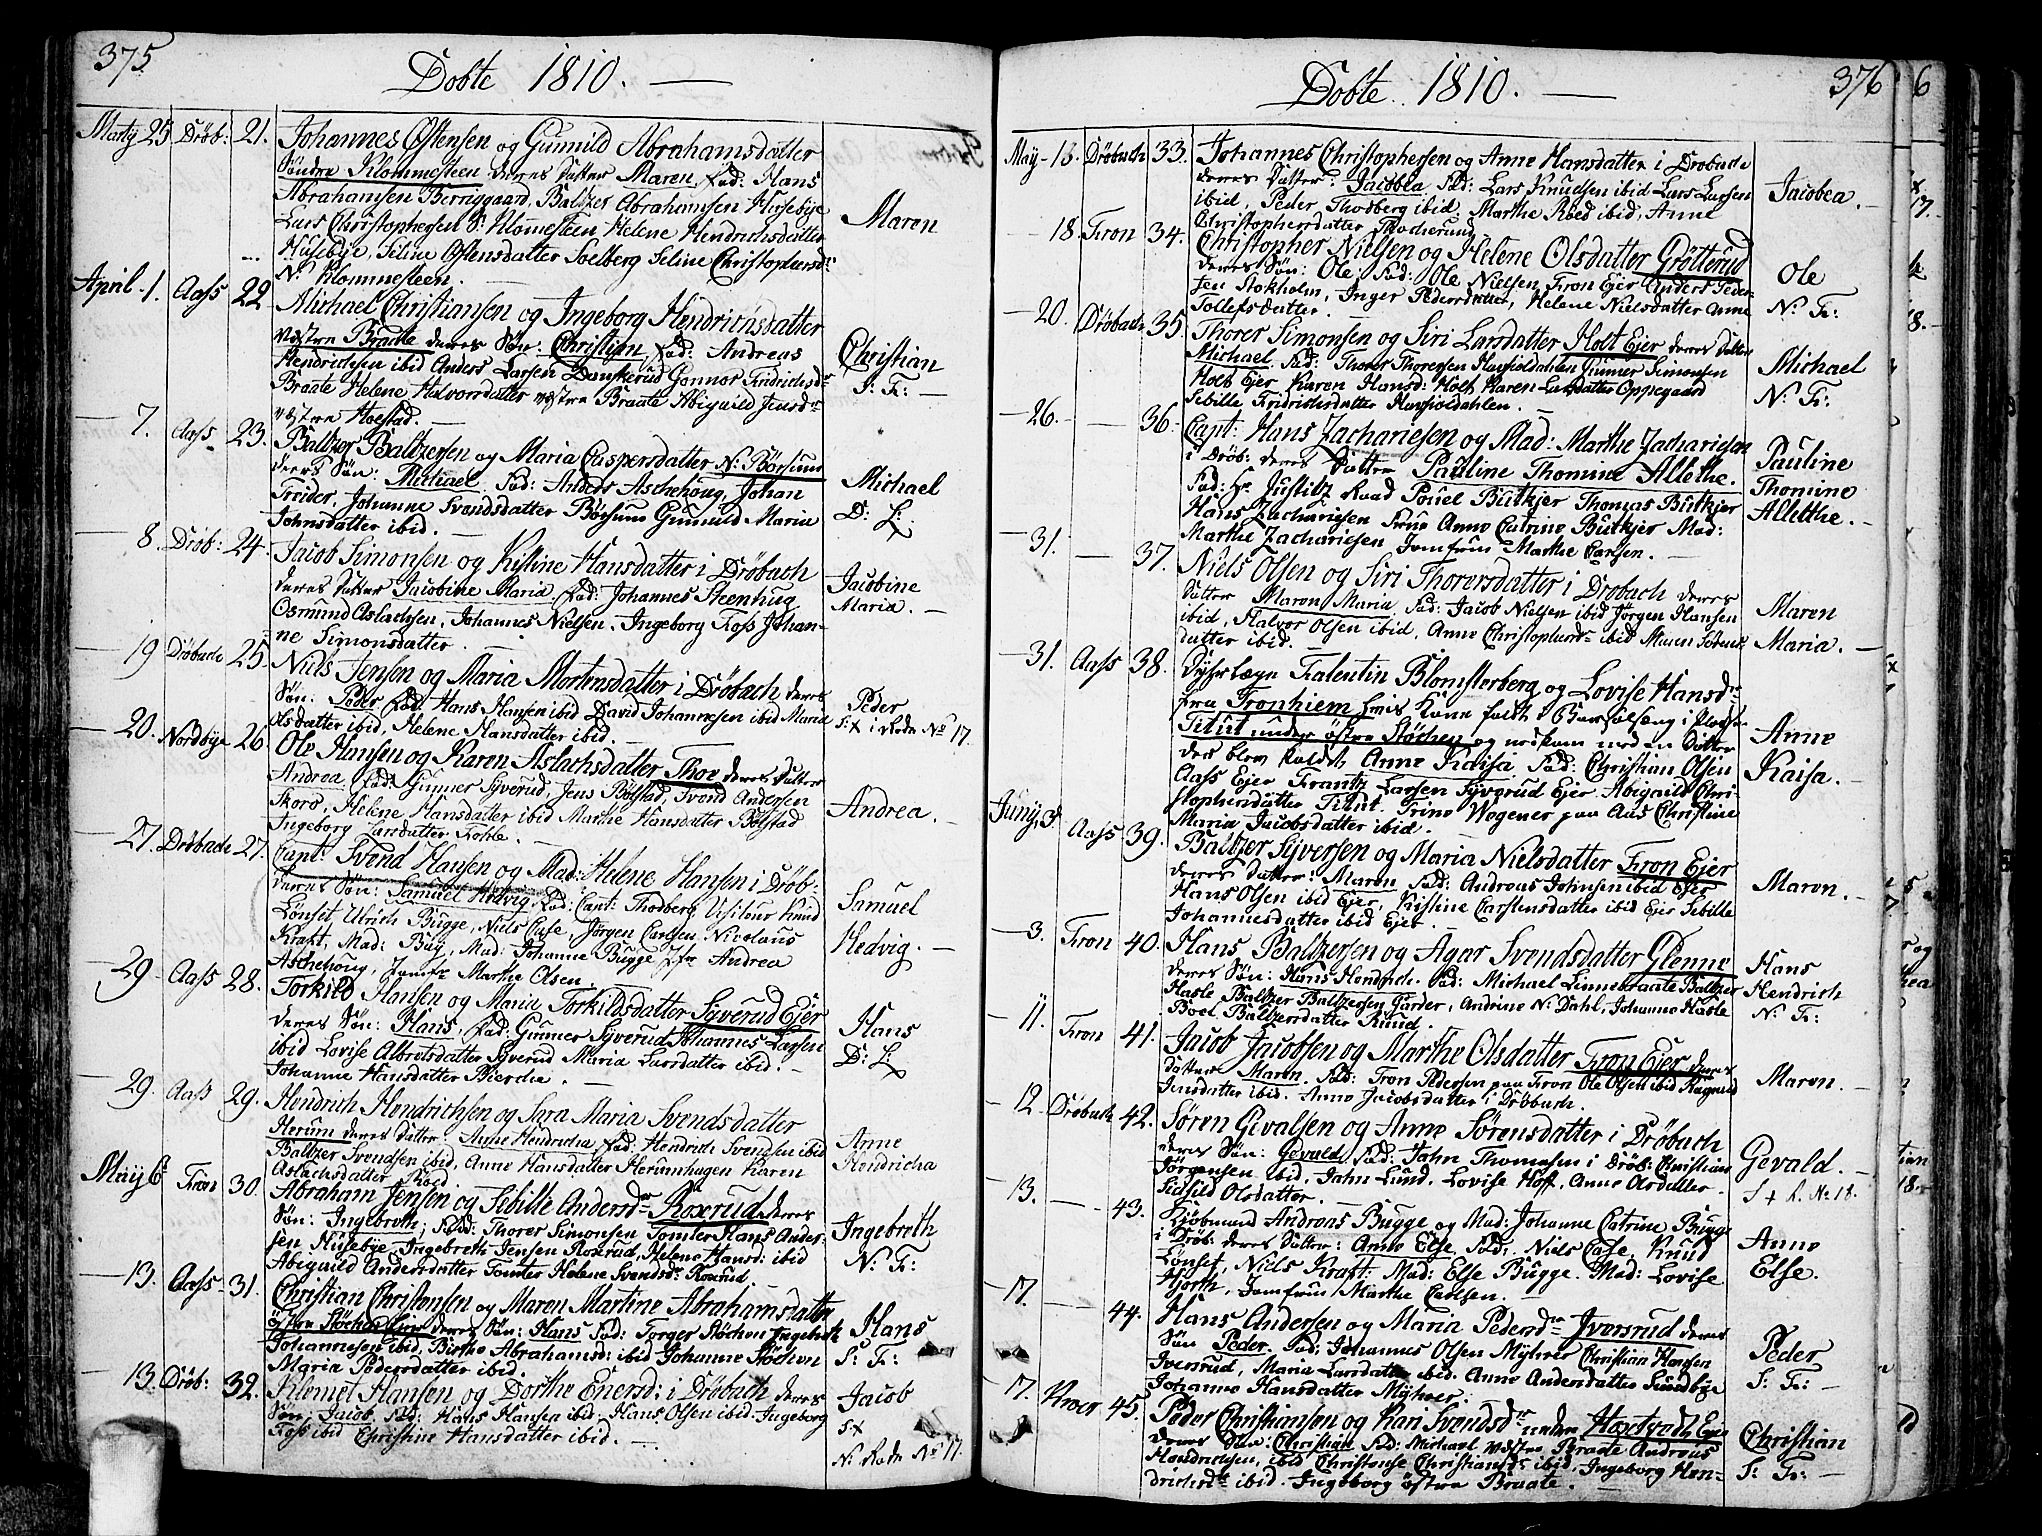 375
Døbte 1810.
Martÿ 25 Drøb: 21. Johannes Østensen og Gunnild Abrahamsdatter
Søndre Klommesteen deres Datter Maren, Fad: Hans
Abrahamsen Berriggaard, Baltzer Abrahamsen Husebye
Lars Christophersen S: Klomesteen Helene Hendrichsdatter
Husebye, Seline Østensdatter Solberg Seline Christophersdr
N: Klommesteen.
Maren
April 1. Aass 22 Michael Christiansen og Ingeborg Hendrichsdatter
vestre Braate deres Søn: Christian, Fad: Andreas
Hendrichsen ibid Anders Larsen Danskerud Gonnor Fridrichsdr
Braate Helene Halvorsdatter vestre Braate Abiguild Jensdr
vestre Hoestad.
Christian
S: F:
7. Aass 23. Baltzer Baltzersen og Maria Caspersdatter N: Børsum
deres Søn: Michael, Fad: Anders Aschehoug, Johan
Treider, Johanne Svendsdatter Børsum Gunnild Maria
Johnsdatter ibid.
Michael
D: L:
8. Drøb: 24. Jacob Simonsen og Kistine Hansdatter i Drøbach
deres Datter Jacobine Maria, Fad: Johannes Steenhug
Osmund Aslachsen, Johannes Nielsen, Ingeborg Foss Johan-
ne Simonsdatter.
Jacobine
Maria.
19 Drøbach 25. Niels Jensen og Maria Mortensdatter i Drøbach deres
Søn: Peder Fad Hans Hansen ibid David Johannesen ibid Maria
Olsdatter ibid, Helene Hansdatter ibid.
Peder
S: x i Rode No 17.
20. Nordbye 26. Ole Hansen og Karen Aslachsdatter Thoe deres Datter
Andrea, Fad: Gunner Syverud, Jens Bølstad, Svend Andersen
Skorø, Helene Hansdatter ibid Marthe Hansdatter Bølstad
Ingeborg Larsdatter Fohle.
Andrea.
27. Drøbach 27. Capt: Svend Hansen og Mad: Helene Hansen i Drøb:
deres Søn: Samuel Hedvig Fad: Capt: Thodberg, Visiteur Knud
Lønset Ulrich Bugge, Niels Case, Jørgen Carlsen, Nicolaus
Kraft, Mad: Bay, Mad: Johanne Bugge Jfr Andrea
Aschehoug, Jomfr Marthe Olsen.
Samuel
Hedvig.
29. Aass 28. Torkild Hansen og Maria Torkildsdatter Syverud Ejer
deres Søn: Hans, Fad: Gunner Syverud Johannes Larsen
ibid Lovise Albretsdatter Syverud Maria Larsdatter ibid.
Johanne Hansdatter Bierche.
Hans
D: L:
29. Aass 29. Hendrich Hendrichsen og Sara Maria Svendsdatter
Herum deres Datter Anne Hendricha Fad: Hendrich Svendsen ibid
Baltzer Svendsen ibid, Anne Hansdatter Herumhagen Karen
Aslachsdatter Roed.
Anne
Hendricha
May 6 Fron 30. Abraham Jensen og Sebille Andersdr Roxerud deres
Søn: Ingebreth, Fad: Thorer Simonsen Tomter Hans Ander-
sen Husebye, Ingebreth Jensen Roxrud, Helene Hansd: ibid
Abiguild Andersdatter Tomter Helene Svendsdr Roxrud.
Ingebreth
N: F:
13. Aass 31. Christian Christensen og Maren Martine Abrahamsdatter
østre Støchen Ejer deres Søn: Hans Fad: Torger Støchen Ingebreth
Johannesen ibid, Birthe Abrahamsd: ibid Johanne Støchen
Maria Pedersdatter ibid.
Hans
S: F:
13. Drøb: 32. Klemet Hansen og Dorthe Enersd: i Drøbach deres
Søn: Jacob, Fad: Hans Hansen ibid, Hans Olsen ibid. Ingeborg
Foss ibid Christine Hansdatter ibid.
Jacob
S: x
N: Rode No 17.
376
Døbte 1810.
May 13. Drøbach 33. Johannes Christophersen og Anne Hansdatter i Drøbach
deres Datter: Jacobea Fad: Lars Knudsen ibid Lars Larsen
ibid, Peder Thodberg ibid, Marthe Roed ibid, Anne
Christophersdatter Skocherund.
Jacobea.
18. Fron 34. Christopher Nielsen og Helene Olsdatter Grøtterud
deres Søn: Ole, Fad: Ole Nielsen Fron Ejer Anders Peder-
sen Stokholm, Inger Pedersdatter, Helene Nielsdatter Anne
Tollefsdatter.
Ole
N: F:
20. Drøbach 35. Thorer Simonsen og Siri Larsdatter Holt Ejer deres Datter
Michael Fad: Thorer Thoresen Haufioldahlen Gunner Simonsen
Holt Ejer Karen Hansd: Holt Karen Larsdatter Oppegaard
Sebille Fridrichsdatter Haufioldahlen.
Michael
N: F:
26. 36. Capt: Hans Zachariesen og Mad: Marthe Zachariesen
i Drøb: deres Datter Pauline Thomine Allethe.
Fad: Hr Justitz Raad Pouel Butkjer Thomas Butkjer
Hans Zachariesen Frue Anne Catrine Butkjer Mad:
Marthe Zachariesen Jomfrue Marthe Carlsen.
Pauline
Thomine
Alletthe.
31. 37. Niels Olsen og Siri Thorersdatter i Drøbach deres
Datter Maren Maria, Fad: Jacob Nielsen ibid Jørgen Hansen
ibid, Halvor Olsen ibid, Anne Christophersdr ibid Maren Sørens
datter ibid.
Maren
Maria.
31. Aass 38. Dyhrlæge Valentin Blomsterberg og Lovise Hansdr
fra Tronhiem hvis Kone faldt i Barselseng i Pladsen
Titut under østre Støchen og nedkom med en Datter
der blev kaldt Anne Kaisa Fad: Christian Olsen
Aass Ejer Frantz Larsen Syverud Ejer. Abiguild Chri-
stophersdatter Titut. Trine Wogener paa Aas Christine
Maria Jacobsdatter ibid.
Anne
Kaisa.
Juny 3 Aass 39. Baltzer Syversen og Maria Nielsdatter Fron Ejer
deres Datter: Maren Fad: Andreas Johnsen ibid Ejer
Hans Olsen ibid Ejer, Kistine Carstensdatter ibid Ejer Sebille
Johannesdatter ibid Ejer.
Maren.
3. Fron 40. Hans Baltzersen og Agar Svendsdatter Glenne
deres Søn: Hans Hendrich. Fad: Michael Linnebraate Baltzer
Hasle Baltzer Baltzersen Garder, Andrine N: Dahl, Johanne Hasle
Boel Baltzersdatter Ruud.
Hans
Hendrich
N: F:
11. Fron 41. Jacob Jacobsen og Marthe Olsdatter Fron Ejer deres
Datter Maren. Fad: Tron Pedersen paa Fron Ole Olsen ibid Ragnild
Jensdatter ibid. Anne Jacobsdatter i Drøbach.
Maren.
12. Drøbach 42. Søren Givalsen og Anne Sørensdatter i Drøbach
deres Søn: Gevald, Fad: John Thomesen i Drøb: Christian
Jørgensen ibid, John Lund, Lovise Hoff, Anne Olsdatter.
Sidsild Olsdatter.
Gevald.
S + R. No 18.
13. 43. Kjøbmand Andreas Bugge og Mad: Johanne Catrine Bugge
i Drøb: deres Datter: Anne Else, Fad: Niels Case, Knud
Lønset, Niels Kraft: Mad: Else Bugge. Mad: Lovise
Hjorth, Jomfrue Marthe Carlsen.
Anne
Else.
17. 44. Hans Andersen og Maria Pedersdr Iversrud deres
Søn Peder. Fad: Johannes Olsen Myhrer Christian Hansen
Iversrud, Maria Larsdatter ibid. Anne Andersdatter Sundbye
Johanne Hansdatter Myhrer.
Peder
S: F:
17. Kroer 45. Peder Christiansen og Kari Svendsdr under Hoxtvedt Ejer
deres Søn: Christian Fad: Michael vestre Braate Andreas
Hendrichsen, ibid Christense Christiansdr ibid, Ingeborg Hen-
drichsdr ibid. Ingeborg østre Braate.
Christian
S: F: